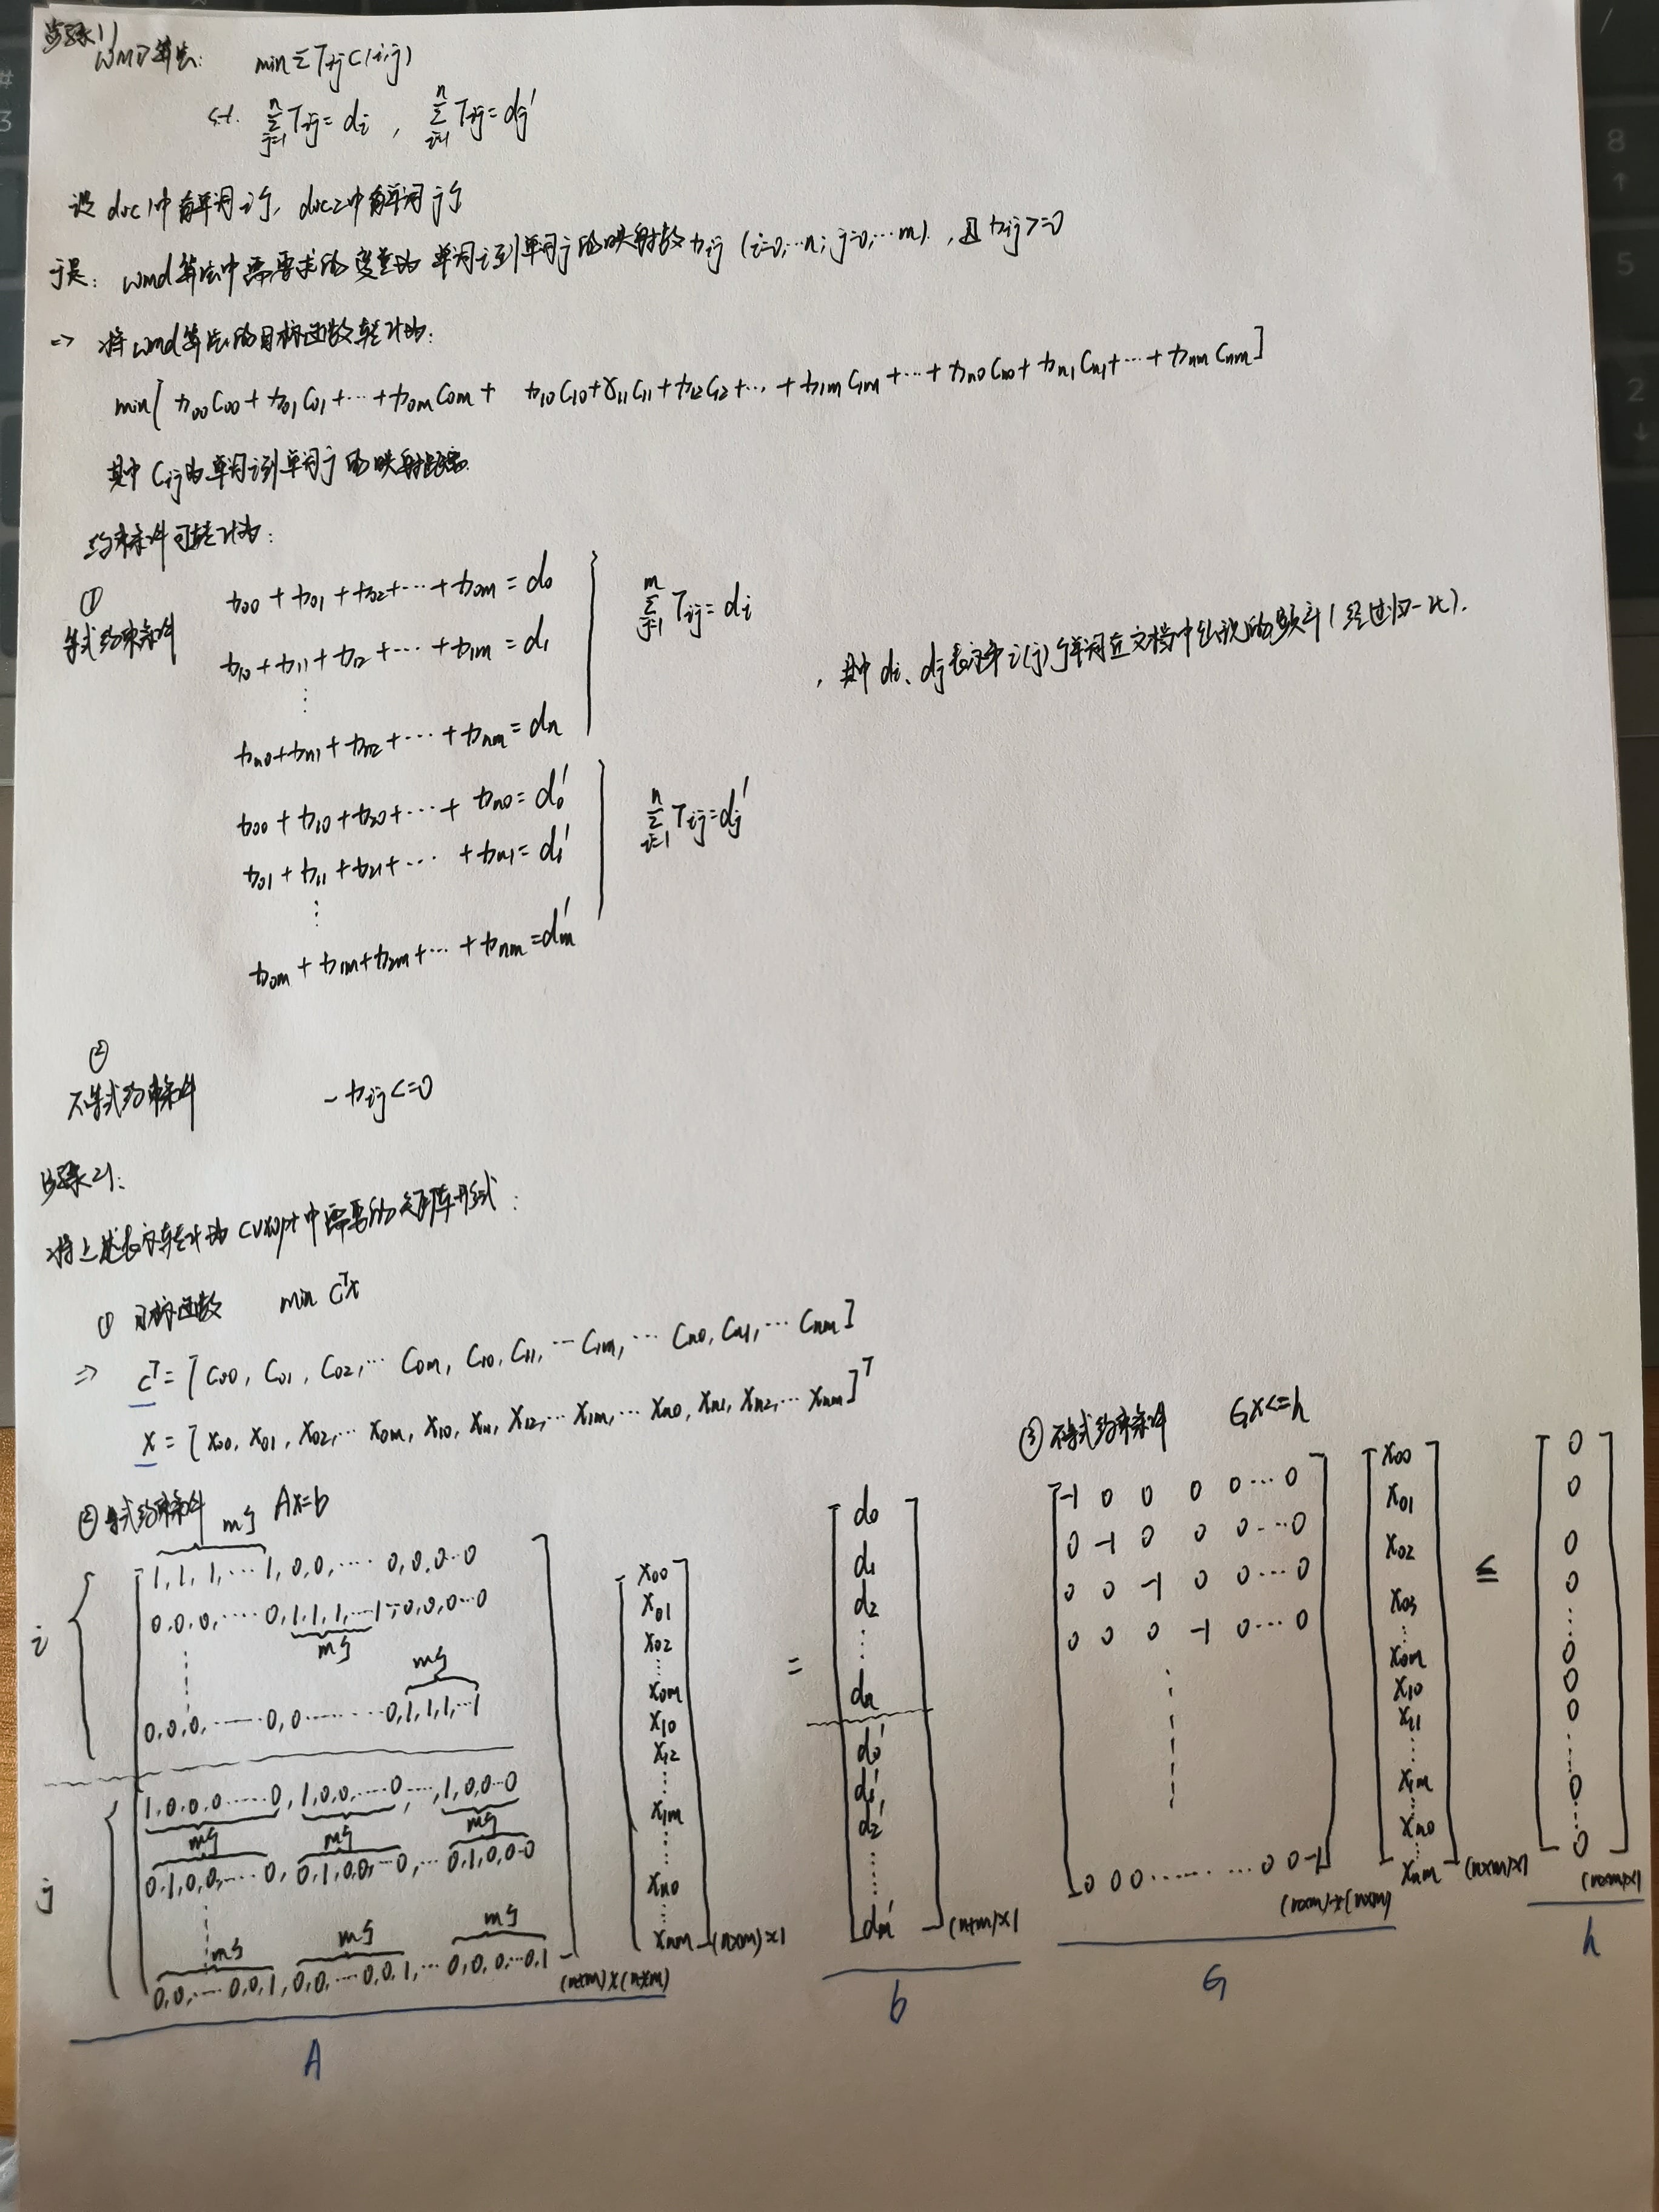 步骤1)
WMD算法: min Σ Tij C(i,j)
s.t. Σ(j=1→n) Tij = di , Σ(i=1→n) Tij = dj'
设 doc1中有单词i个, doc2中有单词j个
于是: wmd算法中需要求的变量为 单词i到单词j的映射数 xij (i=0,…n; j=0,…m), 且 xij >=0
=> 将wmd算法的目标函数转化为:
min[ x00C00 + x01C01 + … + x0mC0m + x10C10 + x11C11 + x12C12 + … + x1mC1m + … + xn0Cn0 + xn1Cn1 + … + xnmCnm ]
其中 Cij为单词i到单词j的映射距离
约束条件可转化为:
① 等式约束条件
x00 + x01 + x02 + … + x0m = d0
x10 + x11 + x12 + … + x1m = d1
⋮
xn0 + xn1 + xn2 + … + xnm = dn
Σ(j=1→m) Tij = di
, 其中 di、dj表示第i(j)个单词在文档中出现的频率(经过归一化).
x00 + x10 + x20 + … + xn0 = d0'
x01 + x11 + x21 + … + xn1 = d1'
⋮
x0m + x1m + x2m + … + xnm = dm'
Σ(i=1→n) Tij = dj'
② 不等式约束条件 -xij <=0
步骤2):
将上述表示转化为 cvxopt 中需要的矩阵形式:
① 目标函数 min CᵀX
=> cᵀ = [C00, C01, C02, … C0m, C10, C11, … C1m, … Cn0, Cn1, … Cnm]
X = [X00, X01, X02, … X0m, X10, X11, X12, … X1m, … Xn0, Xn1, Xn2, … Xnm]ᵀ
② 等式约束条件 AX=b
m个
1, 1, 1, … 1, 0, 0, … 0, 0, 0…0
0, 0, 0, … 0, 1, 1, 1, …1, 0, 0, 0…0
m个
m个
0, 0, 0, … 0, 0 … 0, 1, 1, 1, …1
i
1, 0, 0, 0 … 0, 1, 0, 0, … 0, …, 1, 0, 0…0
m个 m个 m个
0, 1, 0, 0, … 0, 0, 1, 0, 0, …0, … 0, 1, 0, 0…0
m个 m个 m个
0, 0, … 0, 0, 1, 0, 0, … 0, 0, 1, … 0, 0, 0, …0, 1
j
(n+m)×(n×m)
A
X00
X01
X02
⋮
X0m
X10
X12
⋮
X1m
⋮
Xn0
⋮
Xnm
(n×m)×1
=
d0
d1
d2
⋮
dn
d0'
d1'
d2'
⋮
dm'
(n+m)×1
b
③ 不等式约束条件 GX<=h
-1 0 0 0 0 … 0
0 -1 0 0 0 … 0
0 0 -1 0 0 … 0
0 0 0 -1 0 … 0
⋮
0 0 0 … … 0 0 -1
(n×m)×(n×m)
G
X00
X01
X02
X03
⋮
X0m
X10
X11
⋮
X1m
⋮
Xn0
⋮
Xnm
(n×m)×1
≤
0
0
0
0
⋮
0
0
0
⋮
0
⋮
0
(n×m)×1
h